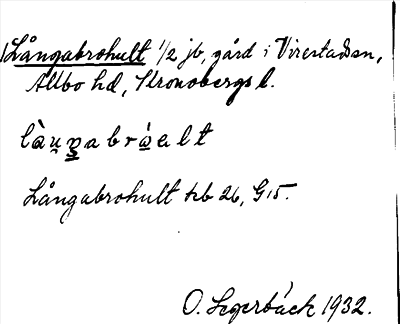 Långabrohult 1/2 jb, gård i Virestad sn,
Allbo hd, Kronobergs l.
Långabrohult kb 26, G15.
O. Segerbäck 1932.